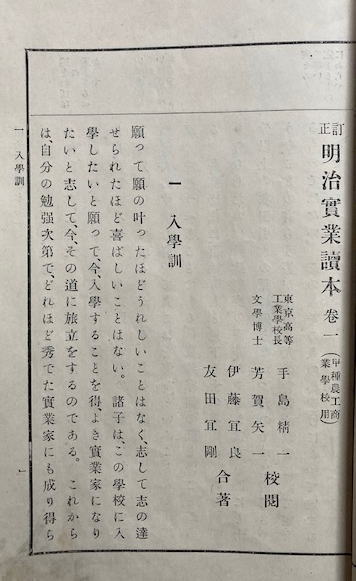 訂正 明治實業讀本 卷一 (甲種農工商業學校用)
東京高等工業學校長 手島精一
文學博士 芳賀矢一 校閲
伊藤宜良
友田宜剛 合著
一 入學訓
願って願の叶ったほどうれしいことはなく、志して志の達
せられたほど喜ばしいことはない。諸子は、この學校に入
學したいと願って、今、入學することを得、よき實業家になり
たいと志して、今、その道に旅立をするのである。これから
は、自分の勉强次第で、どれほど秀でた實業家にも成り得ら
一 入學訓
一